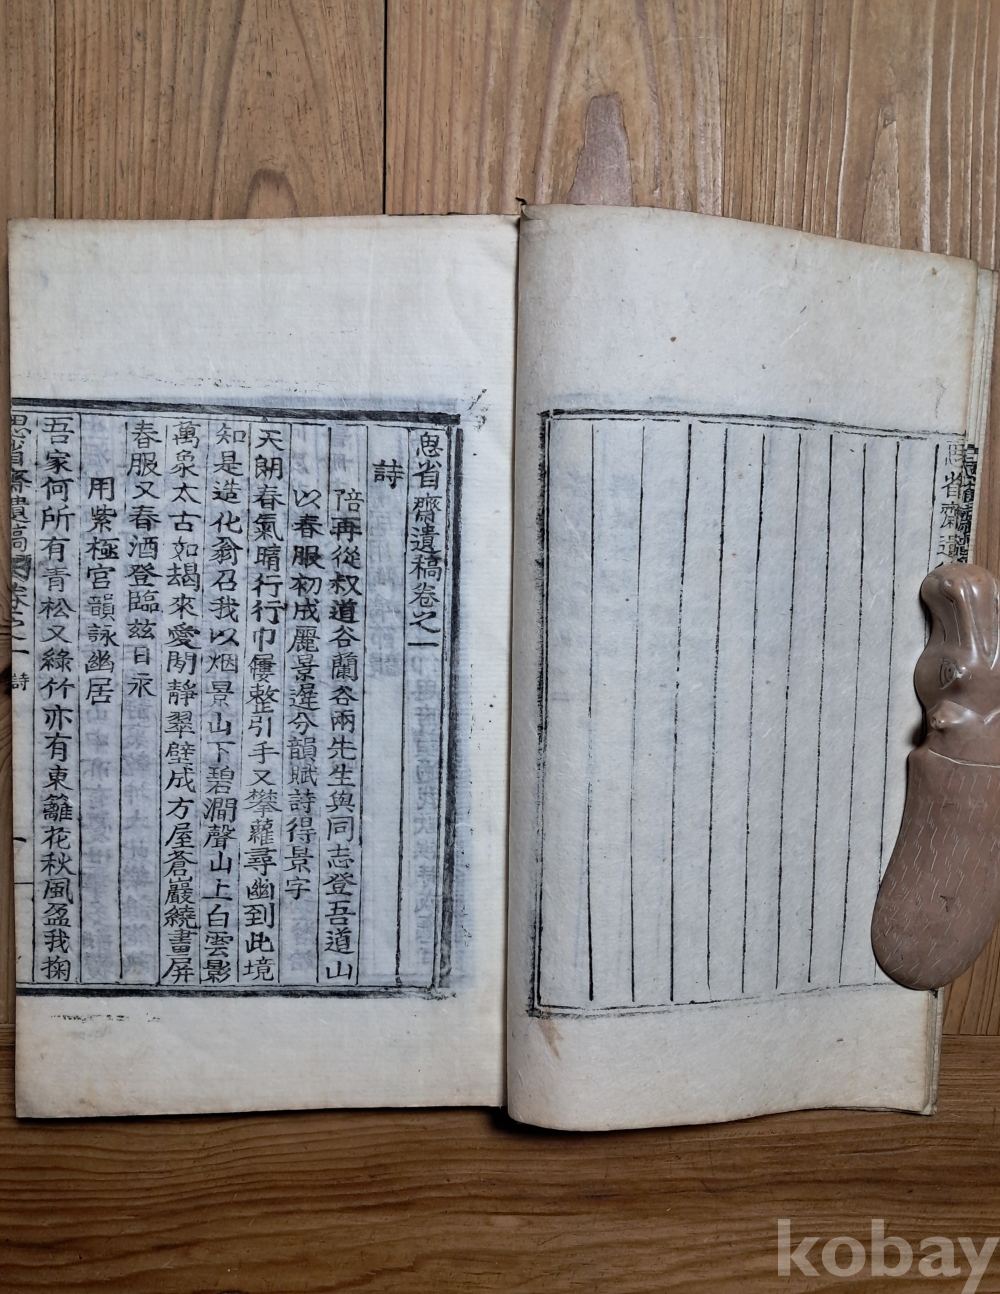 思省齋遺
思省齋遺稿卷之一
詩
陪再從叔道谷蘭谷兩先生與同志登吾道山
以春服初成麗景遲分韻賦詩得景字
天朗春氣晴行行巾屨整引手又攀蘿尋幽到此境
知是造化翁召我以烟景山下碧澗聲山上白雲影
萬象太古如朅來愛閒靜翠壁成方屋蒼巖繞畫屏
春服又春酒登臨玆日永
用紫極宮韻詠幽居
吾家何所有青松又綠竹亦有東籬花秋風盈我掬
思省齋遺稿 卷之一 詩 一
kobay